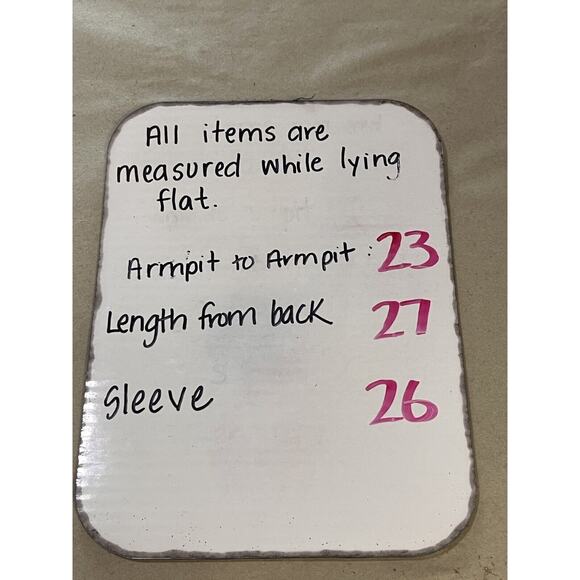 All items are
measured while lying
flat.
Armpit to Armpit: 23
Length from back 27
Sleeve 26